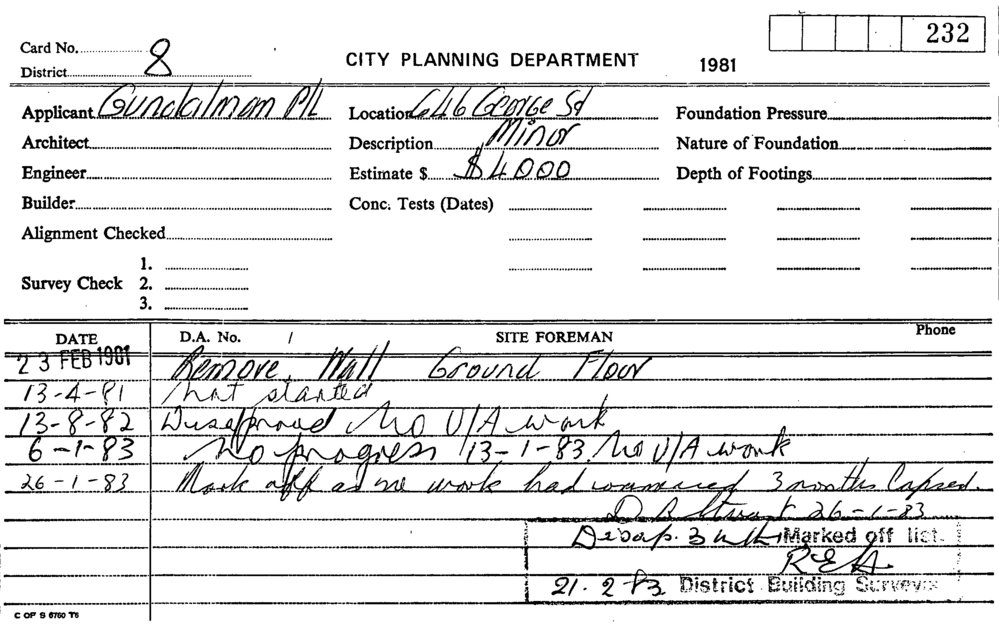 232
Card No. 8
District
CITY PLANNING DEPARTMENT 1981
Applicant Gundalman P/L Location 646 George St Foundation Pressure
Architect Description Minor Nature of Foundation
Engineer Estimate $ $4000 Depth of Footings
Builder Conc. Tests (Dates)
Alignment Checked
1.
Survey Check 2.
3.
DATE D.A. No. / SITE FOREMAN Phone
23 FEB 1981 Remove Wall Ground Floor
13-4-81 Not started
13-8-82 No U/A work
6-1-83 No progress 13-1-83 No U/A work
26-1-83 Mark off as no work had 3 months Lapsed.
26-1-83
Marked off list.
21.2.83 District Building Surveyor
C OF S 6760 T6